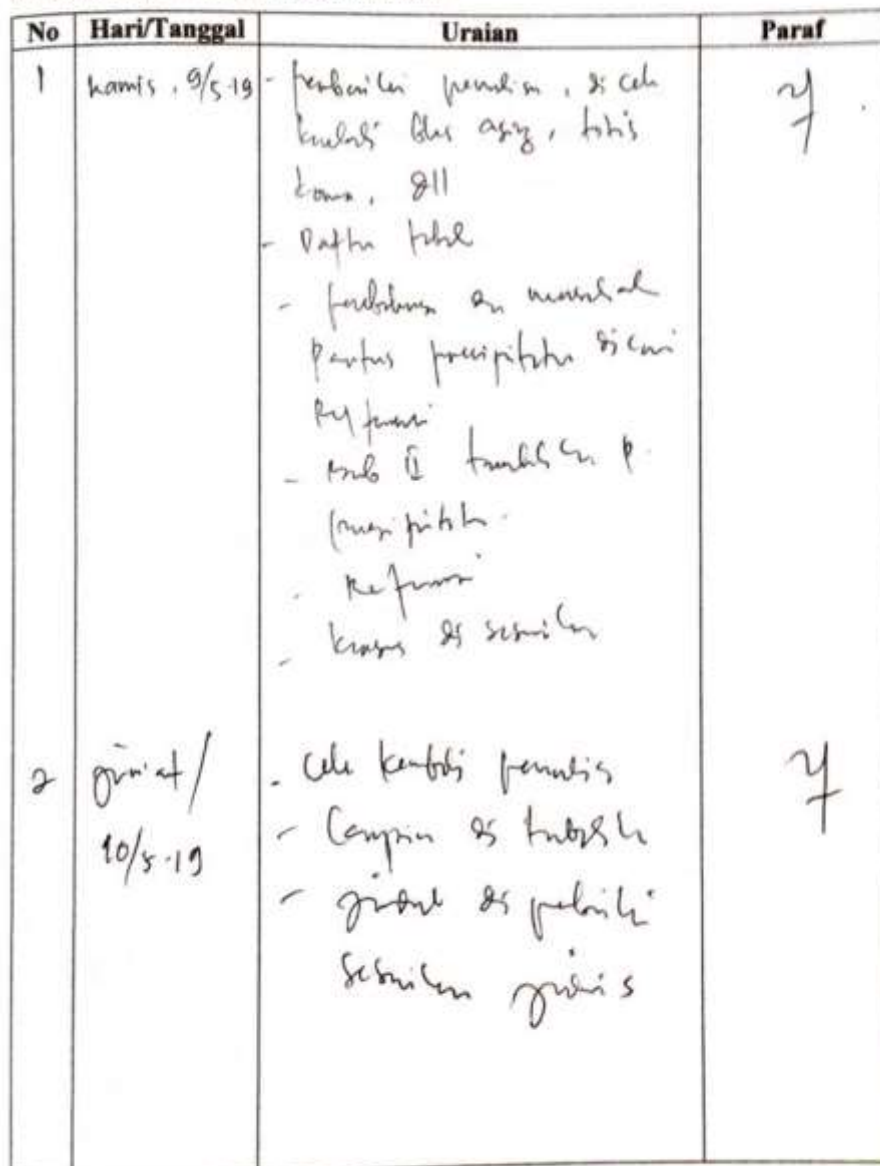 No Hari/Tanggal Uraian Paraf
1 Kamis, 9/5-19 - perbaiki penulisan, di cek
kembali bhs asing, titik
koma, dll
- Daftar tabel
- perbedaan masalah
Partus precipitatus di cari
Referensi
- Bab II tambahkan p.
precipitatus.
- Referensi
- kasus di sesuaikan
2 Jum'at/ - Cek kembali penulisan
10/5-19 - Lampiran di
- Judul di perbaiki
Sesuaikan